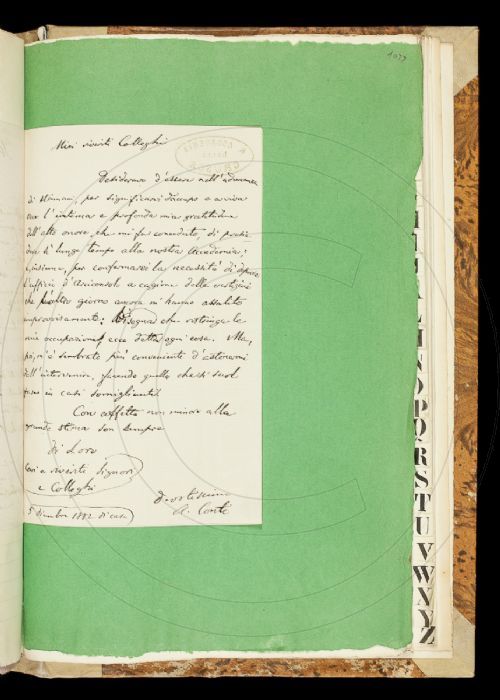 1077
Miei riveriti Colleghi
Desiderava d'essere nell'adunanza
di stamani, per significarvi daccapo e a viva
voce l'intensa e profonda mia gratitudine
dell'alto onore, che mi fu conceduto, di
lungo tempo alla nostra Accademia;
e, insieme, per confermarvi la necessità di deporre
l'ufficio d'Arciconsolo a cagione delle vertigini
che giorno ancora mi hanno assalito
improvvisamente: Bisogna che restringa le
mie occupazioni, ecco detta ogni cosa. Ma,
poi, m'è sembrato più conveniente d'astenermi
dall'intervenire, facendo quello che si suol
fare in casi somiglianti.
Con affetto non minore alla
grande stima son sempre
Di Loro
Cari e riveriti Signori
e Colleghi
5 dicembre 1882 di casa
Devotissimo
A. Conti
N
O
P
Q
R
S
T
U
V
W
X
Y
Z